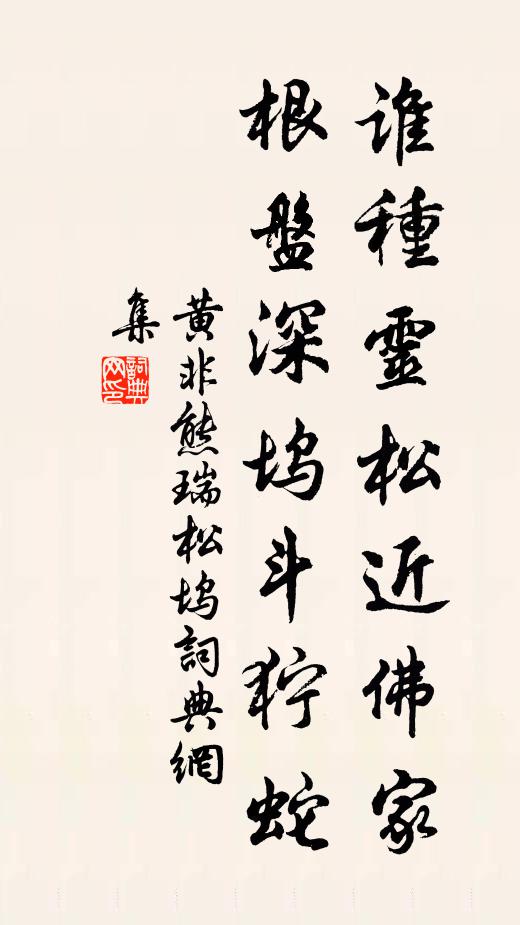 誰種靈松近佛家
根盤深塢斗狞蛇
黄非熊瑞松塢詞典網
集
詞典网印